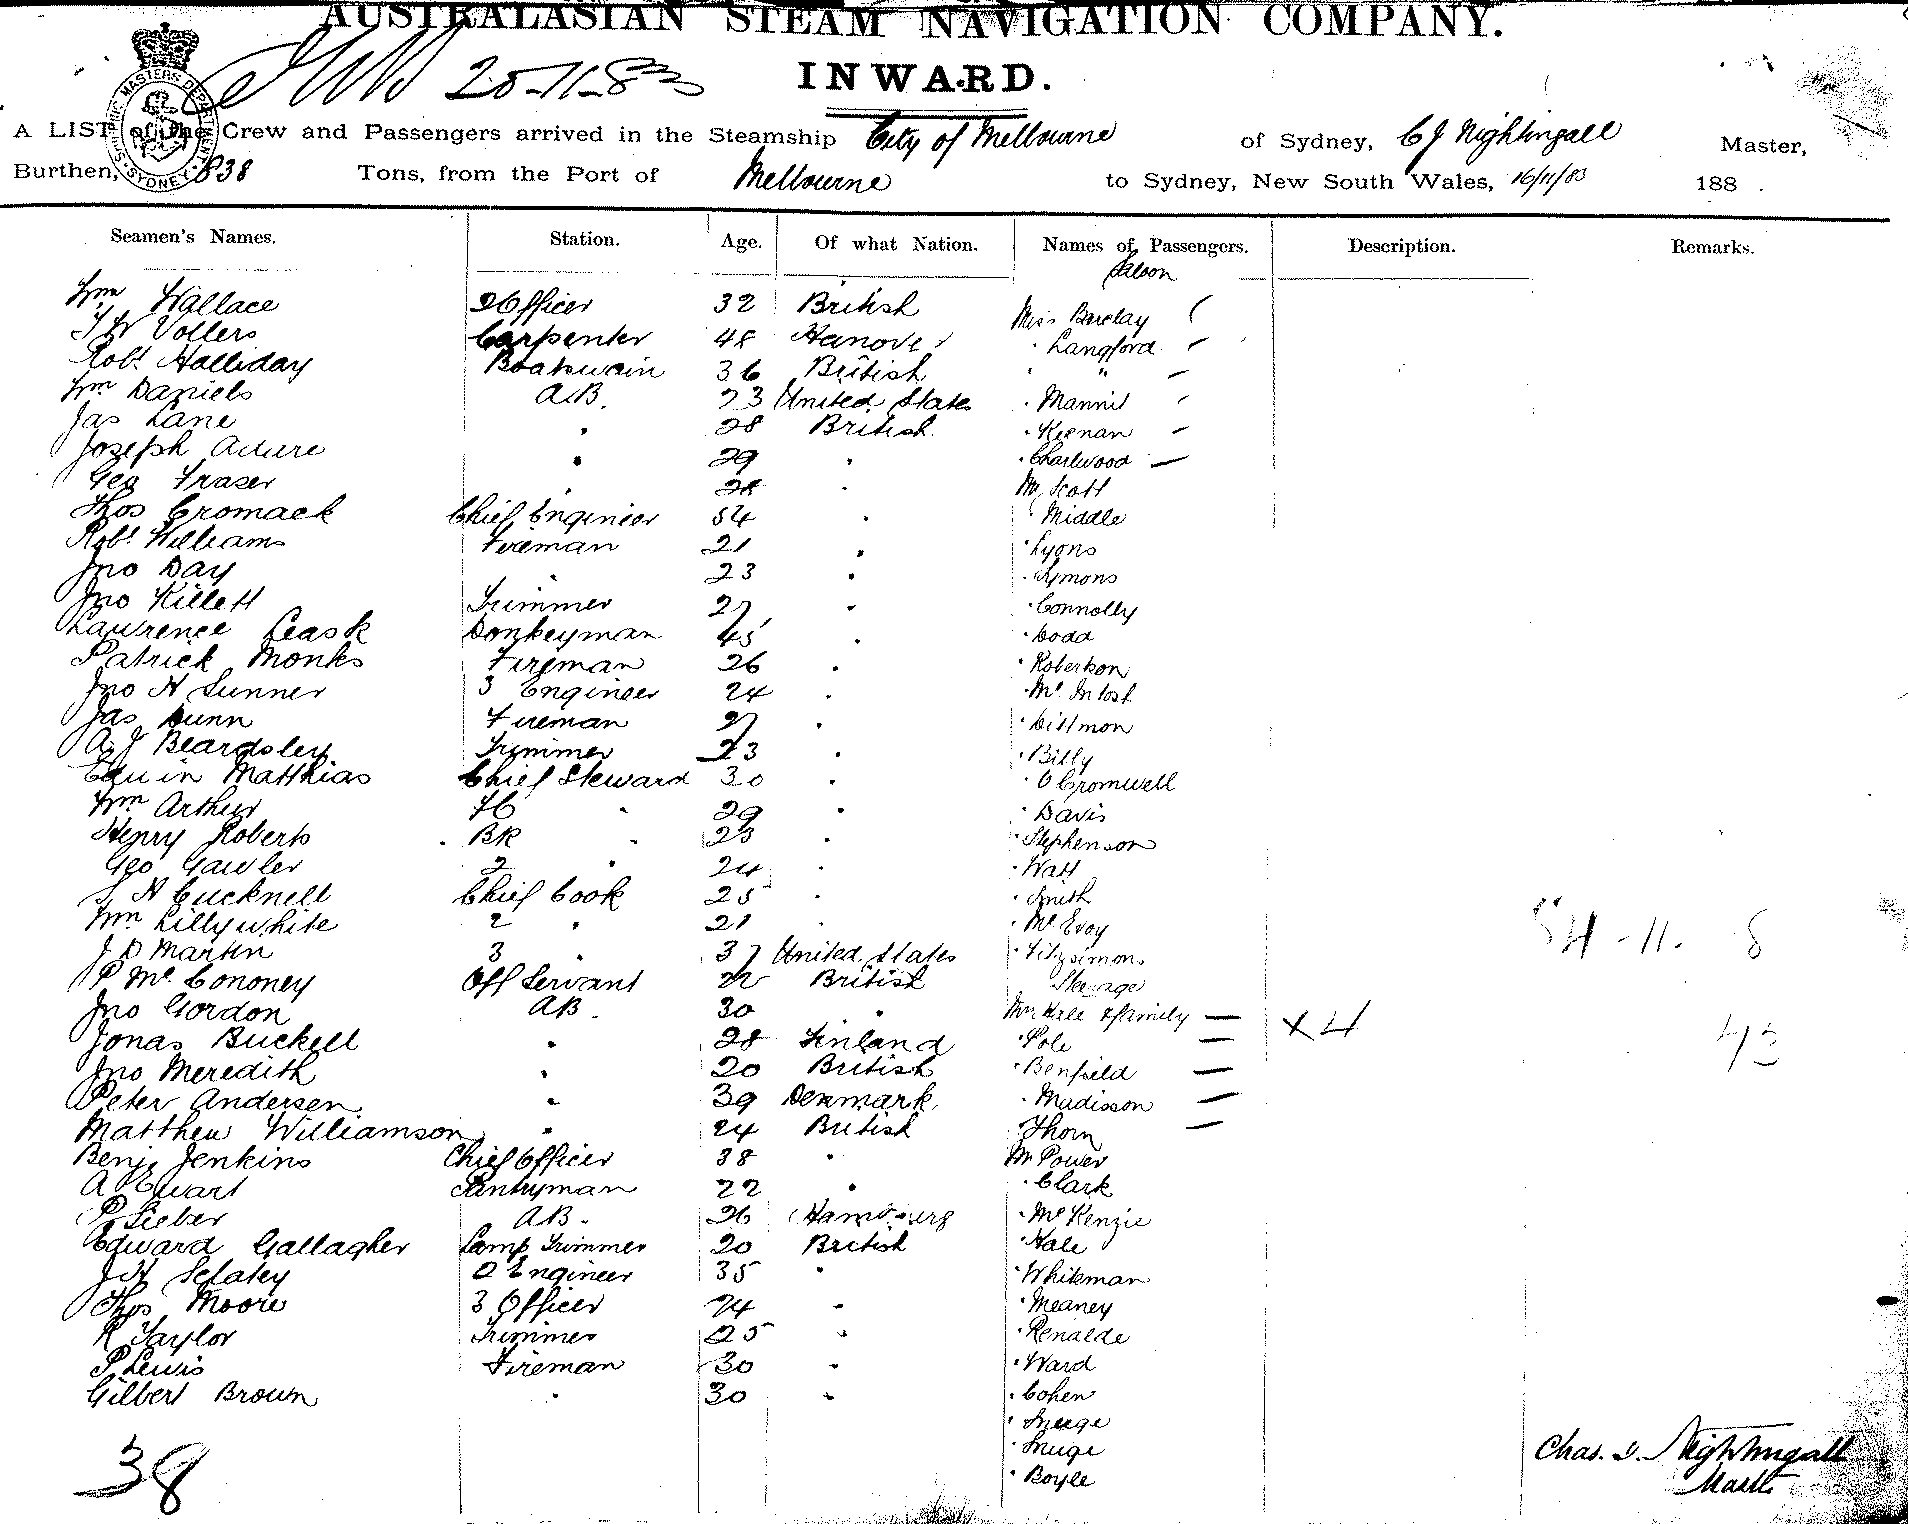 AUSTRALASIAN STEAM NAVIGATION COMPANY.
20-11-83 INWARD.
A LIST of the Crew and Passengers arrived in the Steamship City of Melbourne of Sydney, C J Nightingall Master,
Burthen, 838 Tons, from the Port of Melbourne to Sydney, New South Wales, 16/11/83 188 .
SHIPPING MASTERS DEPARTMENT SYDNEY
Seamen's Names. Station. Age. Of what Nation. Names of Passengers. Description. Remarks.
Saloon
Wm Wallace 2 Officer 32 British Miss Barclay
Vollers Carpenter 48 Hanover " Langford
Robt Halliday Boatswain 36 British " "
Wm Daniels A.B. 23 United States "
Jas Lane " 28 British " Keenan
Joseph " 29 " " Charlwood
Geo Fraser " 28 " Mr Scott
Thos Cromack Chief Engineer 54 " " Middle
Robt Williams Fireman 21 " " Lyons
Jno Day " 23 " " Symons
Jno Killett Trimmer 27 " " Connolly
Laurence Leask Donkeyman 45 " " Dodd
Patrick Monks Fireman 26 " " Robertson
Jno H Sunner 3 Engineer 24 " " McIntosh
Jas Dunn Fireman 27 " " Dittmon
A J Beardsley Trimmer 23 " " Billy
Edwin Matthias Chief Steward 30 " " O Cromwell
Wm Arthur " 29 " " Davis
Henry Roberts BK " 23 " " Stephenson
Geo Gawler 2 " 24 " " Watt
S H Cucknell Chief Cook 25 " " Smith
Wm Lillywhite 2 " 21 " " McEvoy
J D Martin 3 " 37 United States " Fitzsimons
P McCononey Off Servant 22 British Steerage
Jno Gordon AB 30 " Mrs Hale & family — x 4
Jonas Buckell " 28 Finland " Pole —
Jno Meredith " 20 British " Benfield —
Peter Andersen " 39 Denmark " Madisson —
Matthew Williamson " 24 British Thorn —
Benj. Jenkins Chief Officer 38 " Mr Power
A Ewart Pantryman 22 " " Clark
P Sieber AB 26 Hambourg " McKenzie
Edward Gallagher Lamp Trimmer 20 British " Hale
J H 2 Engineer 35 " " Whiteman
Thos Moore 3 Officer 24 " " Meaney
R Taylor Trimmer 25 " " Renalde
P Lewis Fireman 30 " " Ward
Gilbert Brown " 30 " " Cohen
" Boyle
38
43
Chas. J. Nightingall
Master